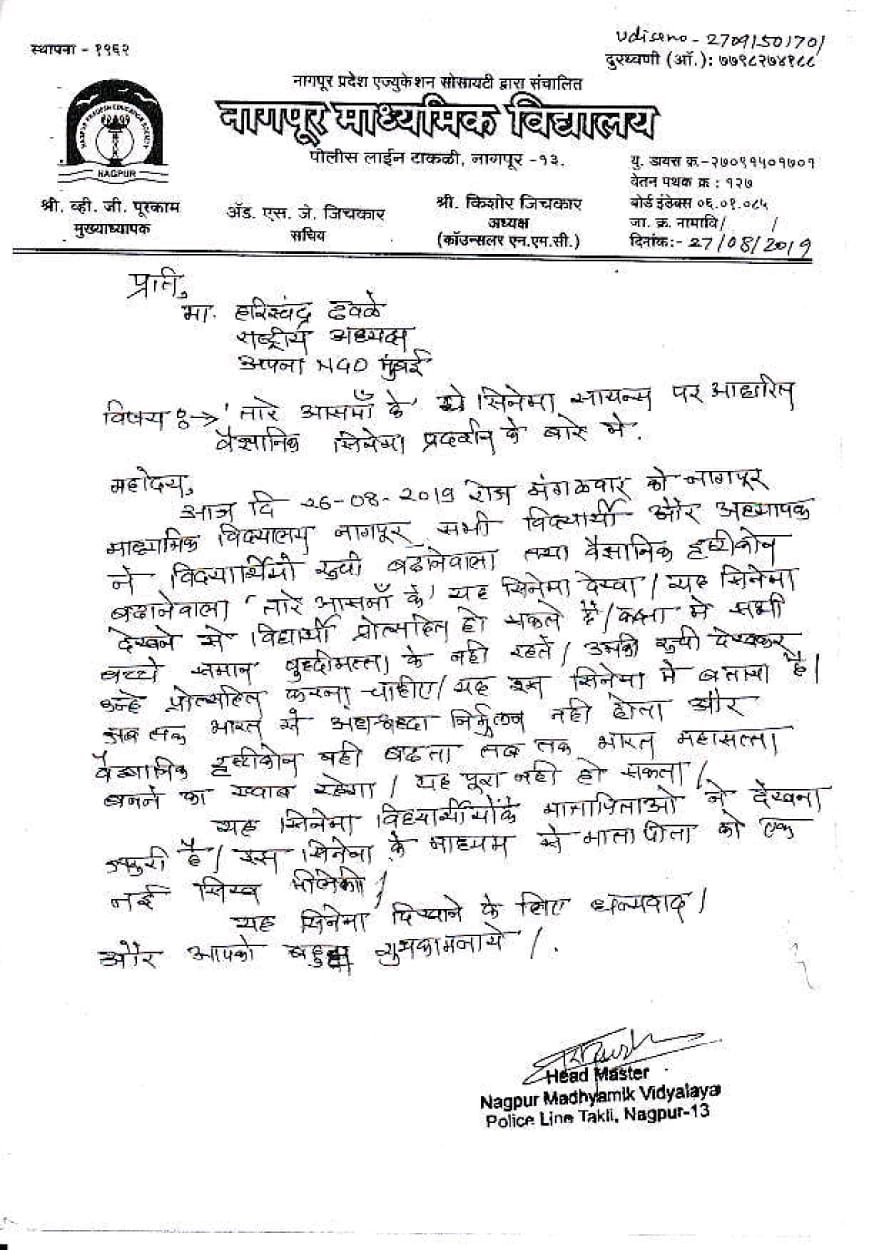 स्थापना - १९६२
Udiseno - 27091501701
दुरध्वणी (ऑ.): ७७९८२७४१८८
नागपूर प्रदेश एज्युकेशन सोसायटी द्वारा संचालित
नागपूर माध्यमिक विद्यालय
पोलीस लाईन टाकळी, नागपूर -१३.
NAGPUR PRADESH EDUCATION SOCIETY
NAGPUR
यु. डायस क्र.-२७०९१५०१७०१
वेतन पथक क्र : १२७
बोर्ड इंडेक्स ०६.०१.०८५
जा. क्र. नामावि/ /
दिनांक:- 27/08/2019
श्री. व्ही. जी. पूरकाम
मुख्याध्यापक
ॲड. एस. जे. जिचकार
सचिव
श्री. किशोर जिचकार
अध्यक्ष
(कॉउन्सलर एन.एम.सी.)
प्रति,
मा. हरिस्चंद्र ढवळे
राष्ट्रीय अध्यक्ष
अपना NGO मुंबई
विषय :-> 'तारे आसमाँ के' ये सिनेमा सायन्स पर आधारित
वैज्ञानिक सिनेमा प्रदर्शन के बारे मे.
महोदय,
आज दि 26-08-2019 रोज मंगळवार को नागपूर
माध्यमिक विद्यालय नागपूर सभी विद्यार्थी और अध्यापक
ने विद्यार्थियो रुची बढानेवाला तथा वैज्ञानिक दृष्टीकोन
बढानेवाला 'तारे आसमाँ के' यह सिनेमा देखा / यह सिनेमा
देखने से विद्यार्थी प्रोत्सहित हो सकते है / कक्षा मे सभी
बच्चे समान बुध्दीमत्ता के नही रहते / उनकी रुची देखकर
उन्हे प्रोत्सहित करना चाहीए / यह इस सिनेमा मे बताया है /
जब तक भारत से अंधश्रध्दा निर्मुलन नही होता और
वैज्ञानिक दृष्टीकोन नही बढता तब तक भारत महासत्ता
बनने का ख्वाब रहेगा / यह पूरा नही हो सकता /
यह सिनेमा विद्यार्थीयोंके मातापिताओ ने देखना
जरुरी है / इस सिनेमा के माध्यम से माता पीता को एक
नई सिख मीलेगी /
यह सिनेमा दिखाने के लिए धन्यवाद /
और आपको बहुत शुभकामनाये /.
Head Master
Nagpur Madhyamik Vidyalaya
Police Line Takli, Nagpur-13